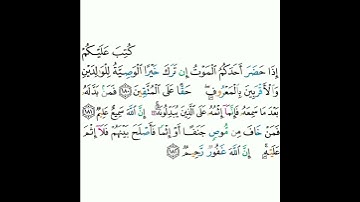 كُتِبَ عَلَيْكُمْ
إِذَا حَضَرَ أَحَدَكُمُ الْمَوْتُ إِن تَرَكَ خَيْرًا الْوَصِيَّةُ لِلْوَالِدَيْنِ
وَالْأَقْرَبِينَ بِالْمَعْرُوفِ ۖ حَقًّا عَلَى الْمُتَّقِينَ ﴿١٨٠﴾ فَمَنۢ بَدَّلَهُ
بَعْدَ مَا سَمِعَهُ فَإِنَّمَا إِثْمُهُ عَلَى الَّذِينَ يُبَدِّلُونَهُ ۚ إِنَّ اللَّهَ سَمِيعٌ عَلِيمٌ ﴿١٨١﴾
فَمَنْ خَافَ مِن مُّوصٍ جَنَفًا أَوْ إِثْمًا فَأَصْلَحَ بَيْنَهُمْ فَلَا إِثْمَ
عَلَيْهِ ۚ إِنَّ اللَّهَ غَفُورٌ رَّحِيمٌ ﴿١٨٢﴾